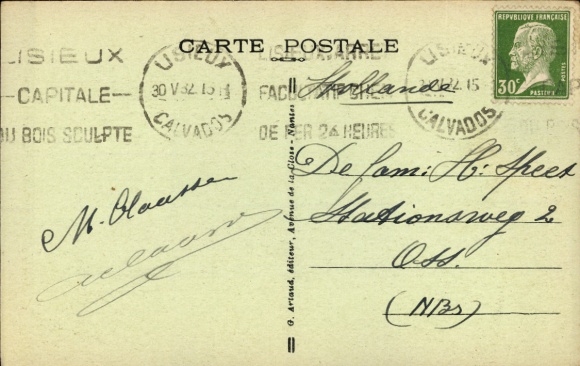 CARTE POSTALE
LISIEUX
CAPITALE
DU BOIS SCULPTE
LISIEUX
30 V 32
CALVADOS
LISIEUX
DE HEURES
LISIEUX
32 15
CALVADOS
REPUBLIQUE FRANÇAISE
POSTES
30c
PASTEUR
Hollande
De fam: H. Speet
Stationsweg 2
Oss.
(NBr)
M. Claassen
G. Artaud, éditeur, Avenue de la Close - Nantes